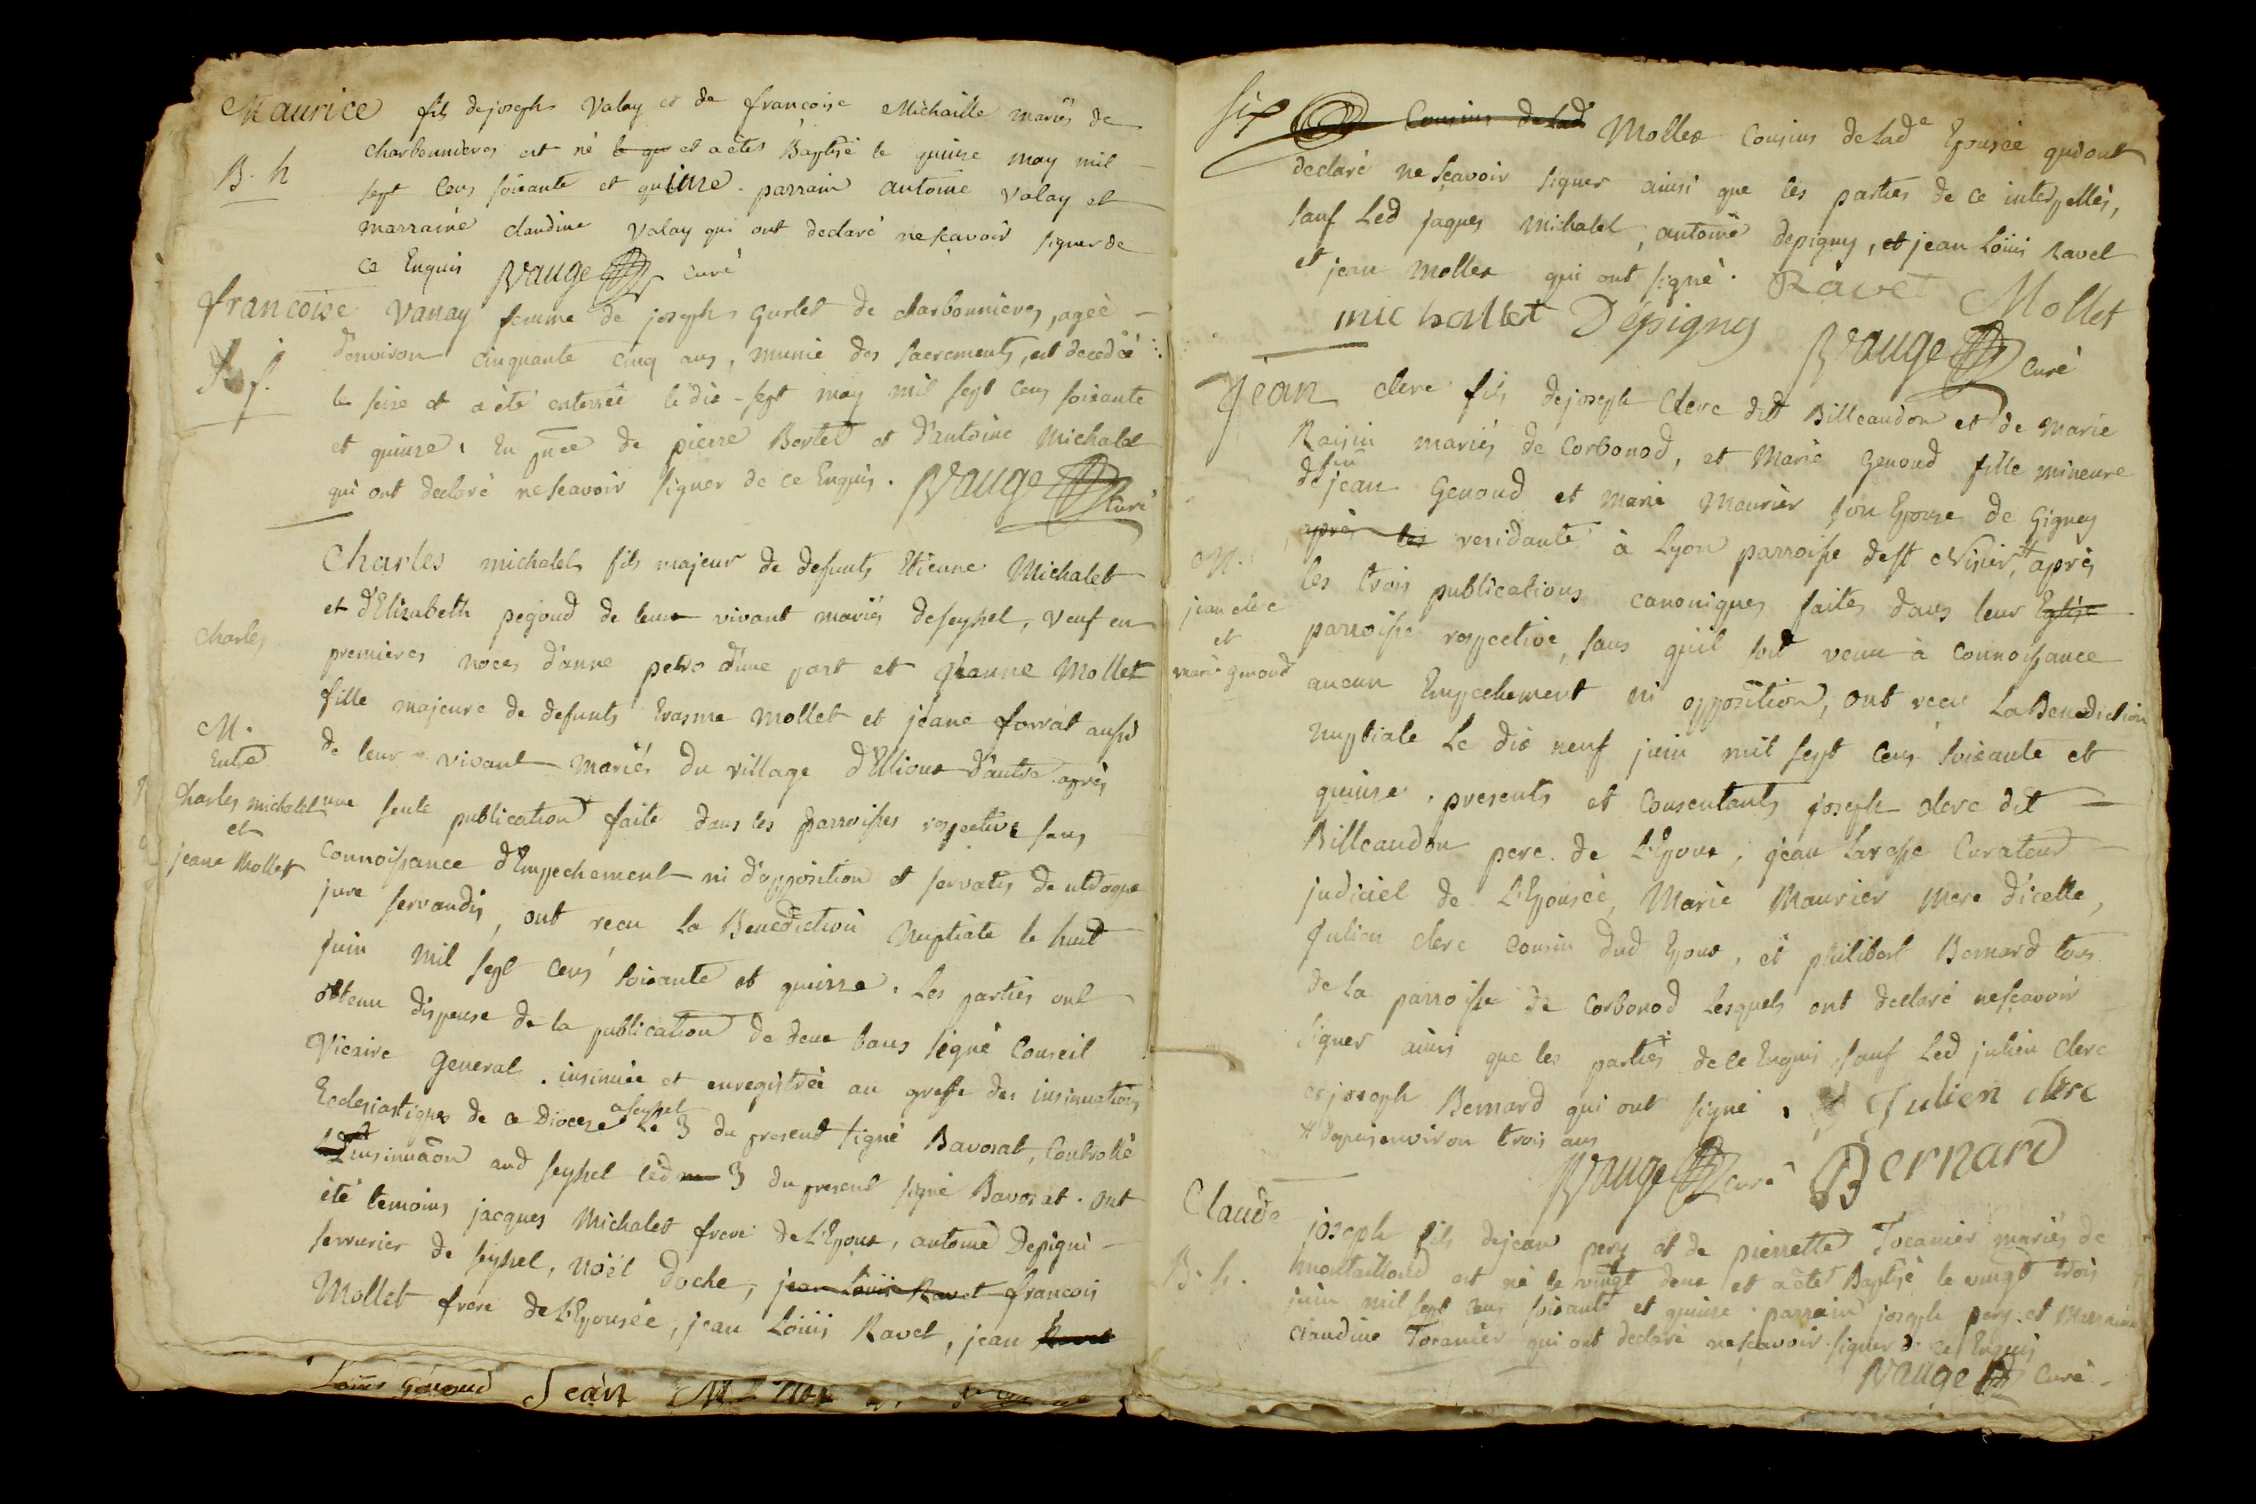 Maurice fils de joseph Valay et de francoise Michaille mariés de
B. h
charbonnieres est né le qu et a étés Baptisé le quinze may mil
sept cens soixante et quinze. parrain antoine valay et
marraine claudine valay qui ont declaré ne scavoir signer de
ce Enquis Vauge curé
francoise vanay femme de joseph gurlet de charbonnieres, agée
d'environ cinquante cinq ans, munie des sacrements, est decedée
S. f.
le seize et a été enterrée le dix-sept may mil sept cens soixante
et quinze. En pnce de pierre Bertet et d'antoine Michalet
qui ont declaré ne scavoir signer de ce Enquis. Vauge Curé
Charles michalet fils majeur de defunts Etienne Michalet
et d'Elizabeth pegoud de leur vivant mariés de seyssel, veuf en
charles
premieres noces d'anne petre d'une part et jeanne Mollet
fille majeure de defunts Erasme Mollet et jeane forrat aussi
M.
Entre
de leur vivant mariés du village d'Elioux d'autre après
charles michalet
et
jeane Mollet
une seule publication faite dans les parroisses respective sans
connoissance d'Empechement ni d'opposition et servatis de utroque
jure servandis, ont recu la Benediction Nuptiale le huit
juin mil sept cens soixante et quinze. Les parties ont
obtenu dispense de la publication de deux bans signé Conseil
Vicaire General. insinuée et enregistrée au greffe des insinuations
Ecclesiastiques de ce Dioceze a seyssel Le 3 du present signé Bavosat, Controllé
L'insinuaon aud seyssel led 3 du present signé Bavosat. ont
été temoins jacques Michalet frere de L'Epoux, antoine Depigni
serrurier de seyssel, Noël Doche, jean Loüis Ravet francois
Mollet frere de L'Epousée, jean Loüis Ravet, jean Ravet
Loüis Genoud Jean
six
Cousins de Lad Mollet Cousins de Lade Epousée qui ont
declaré ne scavoir signer ainsi que les parties de ce interpellés,
sauf Led jaques Michalet, antoine depigny, et jean Loüis Ravet
et jean Mollet qui ont signé. Ravet Mollet
michallet Dépigny Vauge Curé
jean clerc fils de joseph Clerc dit Billeaudon et de Marie
Raisin mariés de Corbonod, et Marie Genoud fille mineure
de feu jean Genoud et Marie Maurier son Epouse de Gigney
après les residante à Lyon parroisse de St Nisier, # après
M.
jean clerc
et
marie genoud
les trois publications canoniques faites dans leur Eglise
parroisse respective, sans qu'il soit venu à connoissance
aucun Empechement ni opposition, ont recu La Benediction
Nuptiale Le dix neuf juin mil sept cens soixante et
quinze. presents et Consentants joseph clerc dit
Billeaudon pere de L'Epoux, jean Larasse Curateur
judiciel de L'Epousée, Marie Maurier Mere d'icelle,
Julien clerc Cousin dud Epoux, et philibert Bernard tous
de La parroisse de Corbonod Lesquels ont declaré ne scavoir
signer ainsi que les parties de ce Enquis, sauf Led julien clerc
et joseph Bernard qui ont signé. Julien clerc
# depuis environ trois ans
Vauge curé Bernard
Claude joseph fils de jean pery et de pierrette Tocanier mariés de
B. h.
montailloud est né le vingt deux et a été Baptisé le vingt trois
juin mil sept cens soixante et quinze. parrain joseph pery et Marraine
claudine Tocanier qui ont declaré ne scavoir signer de ce Enquis
Vauge Curé